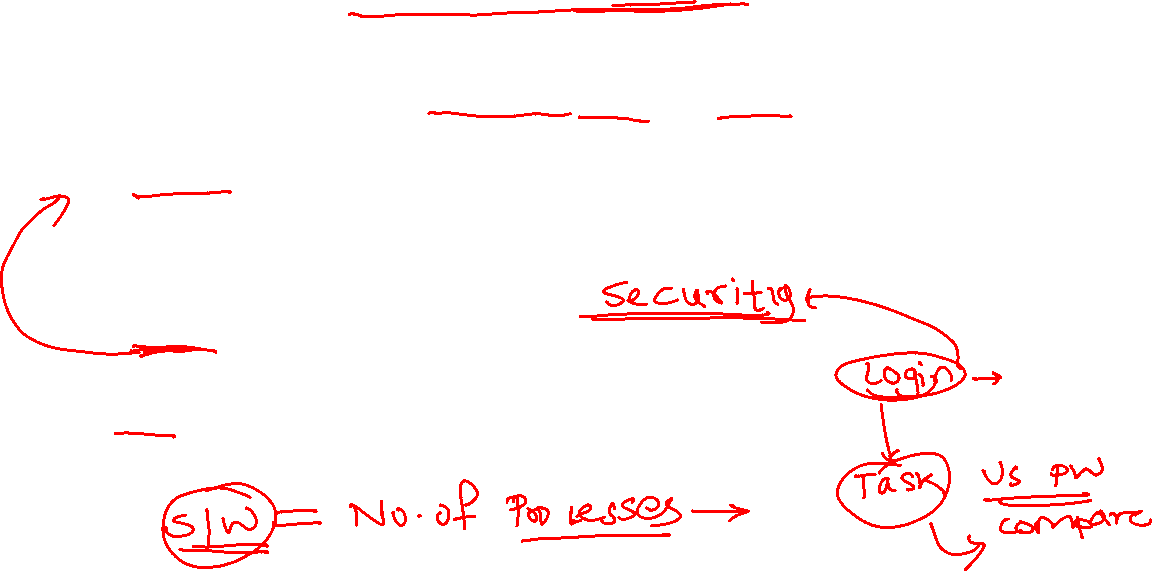 securitiy
Login
Task
US PW
compare
S/W = No. of Processes →